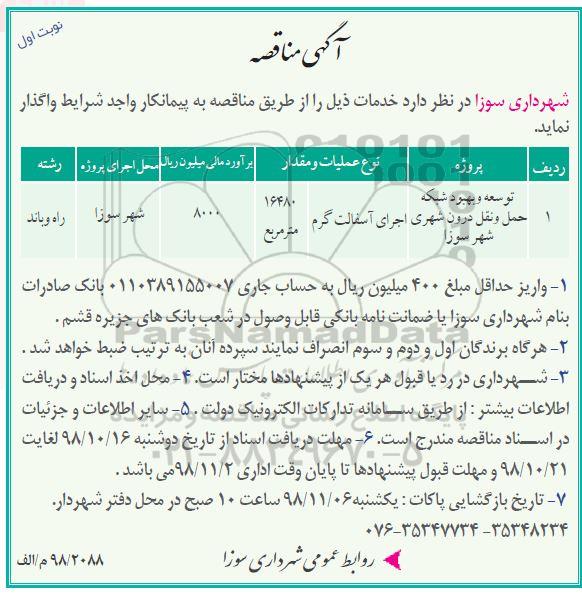 نوبت اول
آگهی مناقصه
شهرداری سوزا در نظر دارد خدمات ذیل را از طریق مناقصه به پیمانکار واجد شرایط واگذار
نماید.
ردیف پروژه نوع عملیات و مقدار برآورد مالی میلیون ریال محل اجرای پروژه رشته
۱ توسعه وبهبود شبکه حمل ونقل درون شهری شهر سوزا اجرای آسفالت گرم ۱۶۴۸۰ مترمربع ۸۰۰۰ شهر سوزا راه وباند
۱- واریز حداقل مبلغ ۴۰۰ میلیون ریال به حساب جاری ۰۱۱۰۳۸۹۱۵۵۰۰۷ بانک صادرات
بنام شهرداری سوزا یا ضمانت نامه بانکی قابل وصول در شعب بانک های جزیره قشم .
۲- هرگاه برندگان اول و دوم و سوم انصراف نمایند سپرده آنان به ترتیب ضبط خواهد شد .
۳- شهرداری در رد یا قبول هر یک از پیشنهادها مختار است. ۴- محل اخذ اسناد و دریافت
اطلاعات بیشتر : از طریق سامانه تدارکات الکترونیک دولت . ۵- سایر اطلاعات و جزئیات
در اسناد مناقصه مندرج است. ۶- مهلت دریافت اسناد از تاریخ دوشنبه ۹۸/۱۰/۱۶ لغایت
۹۸/۱۰/۲۱ و مهلت قبول پیشنهادها تا پایان وقت اداری ۹۸/۱۱/۲می باشد .
۷- تاریخ بازگشایی پاکات : یکشنبه۹۸/۱۱/۰۶ ساعت ۱۰ صبح در محل دفتر شهردار.
۰۷۶-۳۵۳۴۷۷۳۴ -۳۵۳۴۸۲۳۴
روابط عمومی شهرداری سوزا
۹۸/۲۰۸۸ م/الف
ParsNamadData
۰۲۱-۸۸۳۴۹۶۷۰-۵